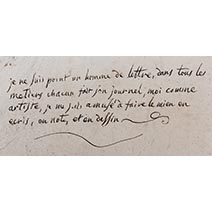 je ne suis point un homme de lettre, dans tous les
metiers chacun fait son journel, moi comme
artiste, je me suis amusé à faire le mien en
ecris, ou note, et en dessin